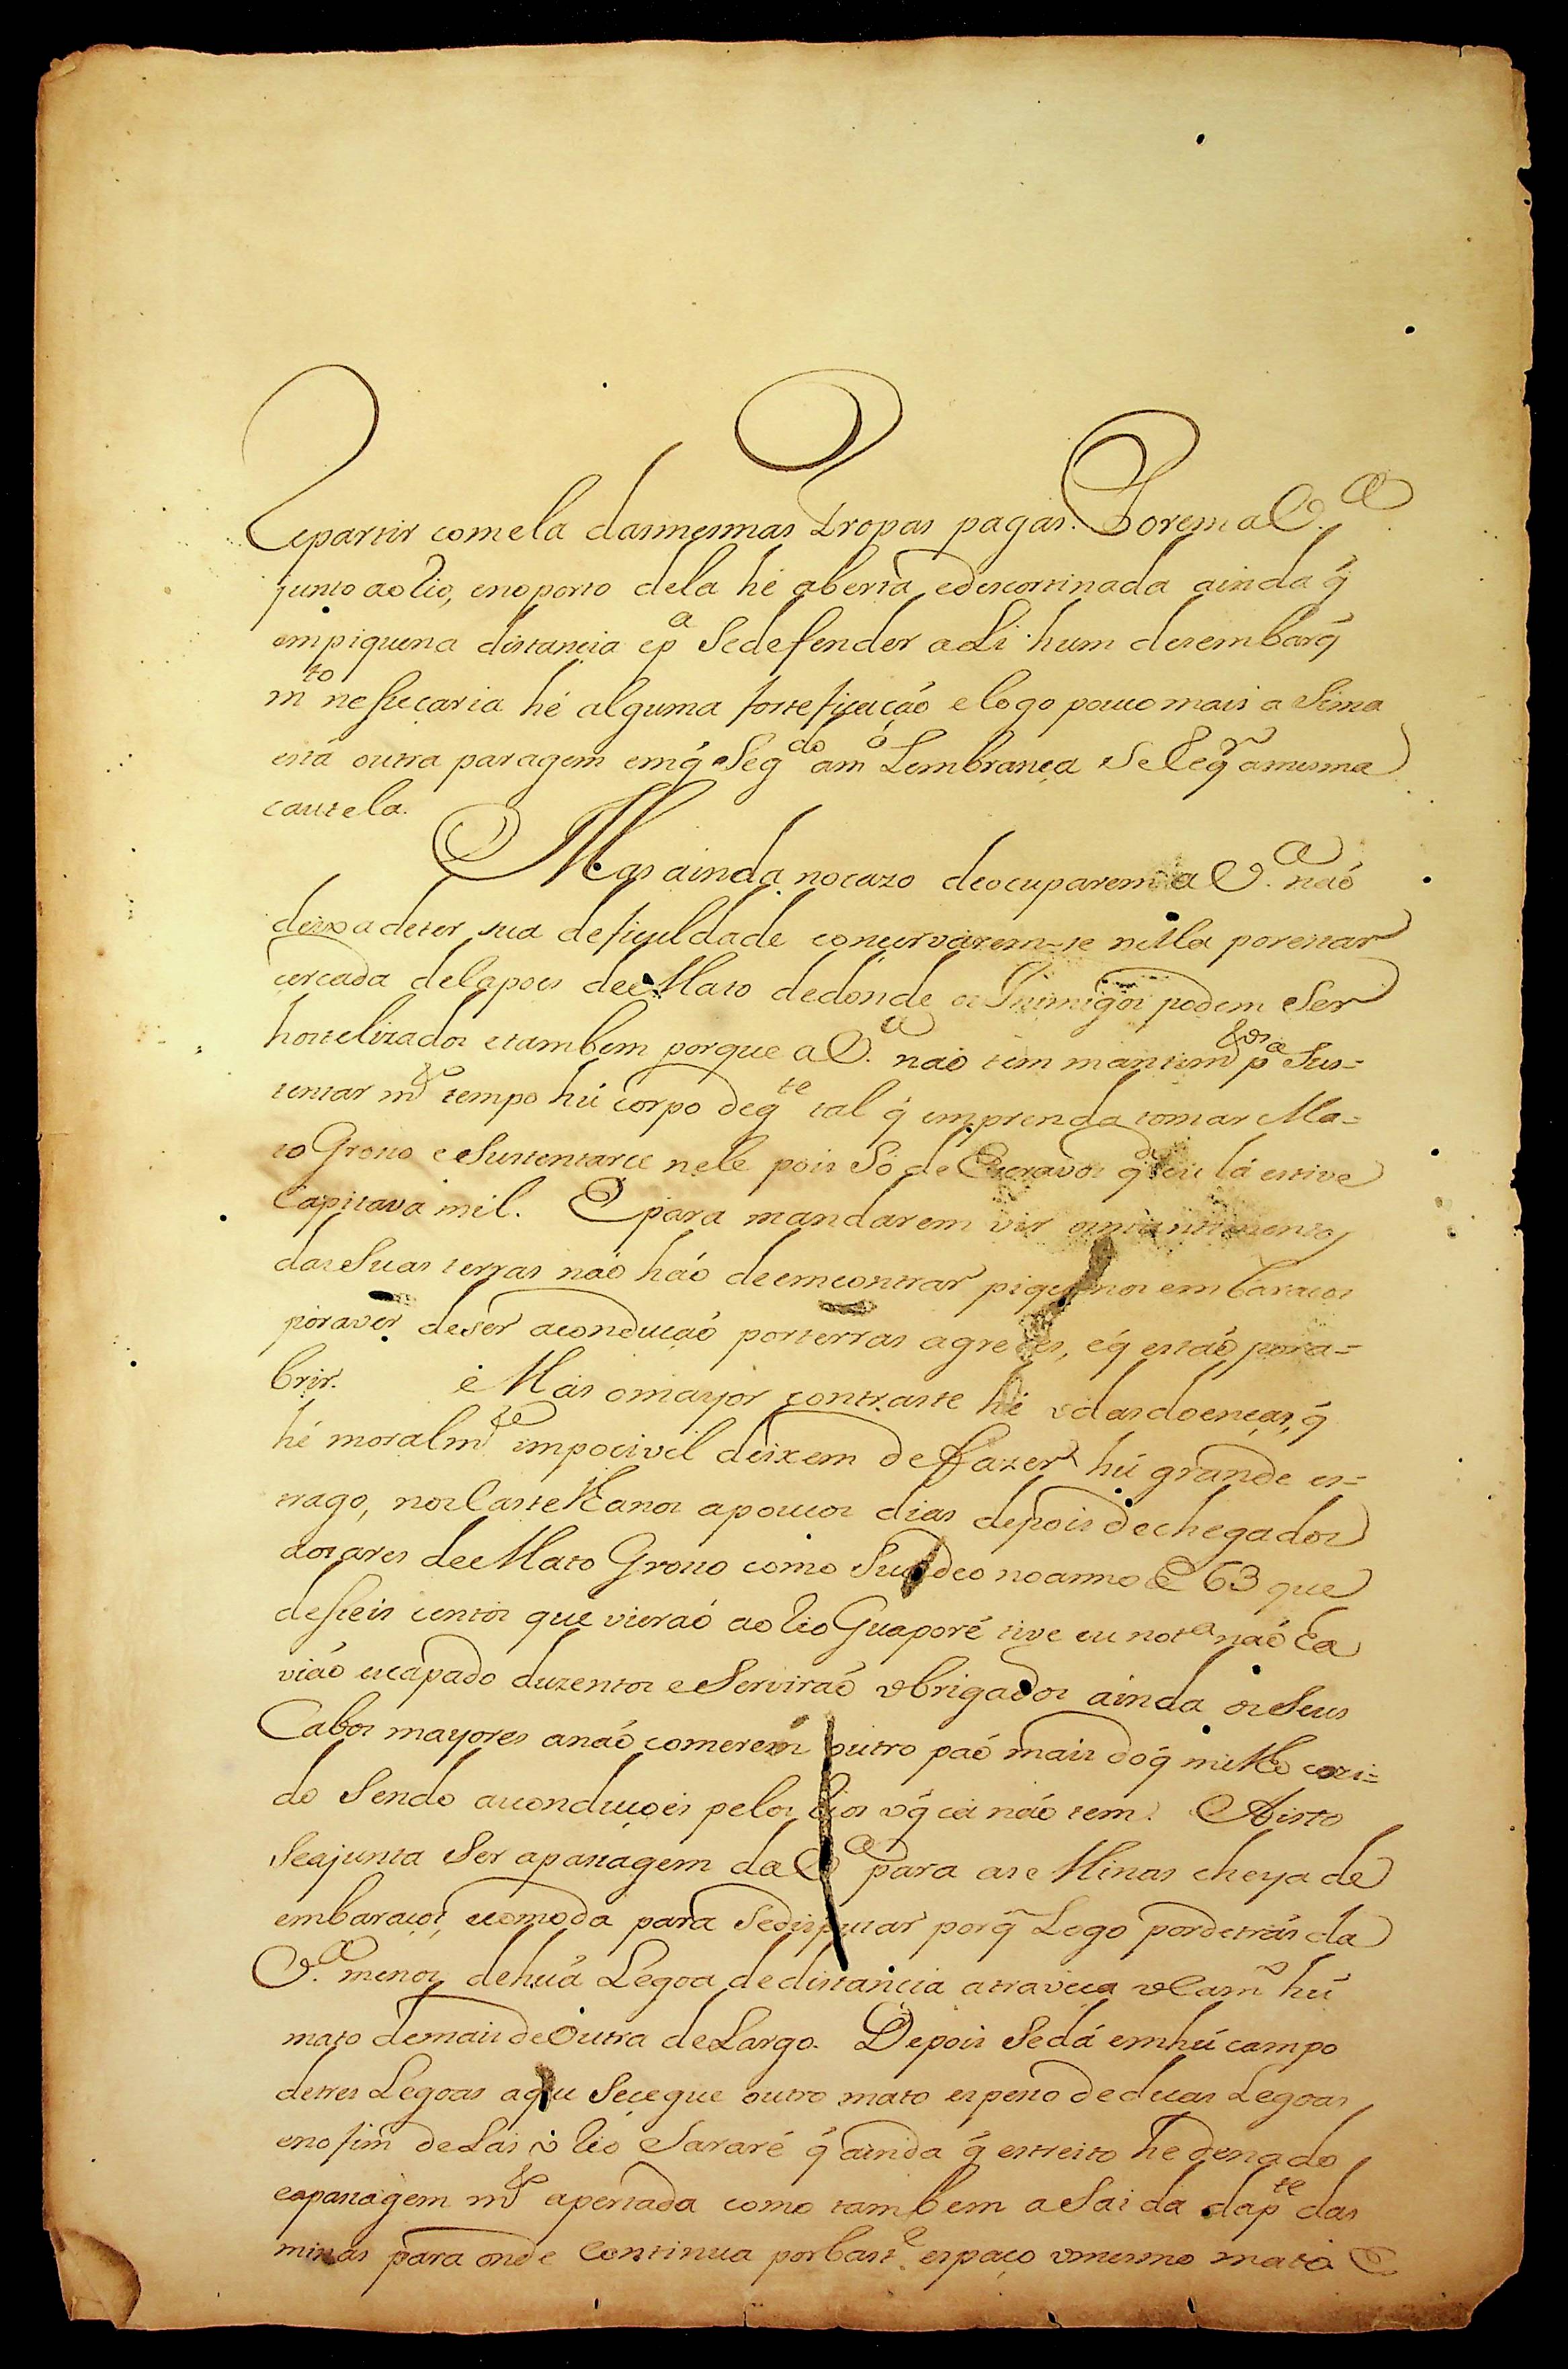 Repartir com ela das mesmas tropas pagas. Porem a V.ª
junto ao Rio, e no porto dela hé aberta e descortinada ainda q̃
em piquena distancia e p.ª se defender a Li hum desembarq̃
m.to nesseçaria hé alguma forteficação e logo pouco mais a Sima
está outra paragem em q̃ Seg.do a m.ª Lembrança se Req.r a mesma
cautela.
Mas ainda no cazo de ocuparem a V.ª não
deixa de ter sua deficuldade concervarem-se nella por estar
cercada de Capoes de Mato de donde os Inimigos podem Ser
hostelizados e tambem porque a V.ª não tem mantim.tos p.ª Sus=
tentar m.to tempo hú corpo de g.te tal q̃ emprenda tomar Ma=
to Grosso e Sustentarce nele pois Só de Escravos q.do eu lá estive
Capitava mil. E para mandarem vir os mantimentos
das Suas terras não hão de emcontrar piquenos embaraços
por aver de ser a condução por terras agrestes, e q̃ estão por a=
brir. e Mas o mayor contraste hé o das doenças, q̃
hé moralm.te impocivel deixem de fazer hú grande es=
trago, nos Castelhanos a poucos dias depois de chegados
aos ares de Mato Grosso como Sucedeo no anno de 63 que
de sseis centos que vierão ao Rio Guaporé tive eu not.ª não ha
vião escapado duzentos e Servirão obrigados ainda os Seus
Cabos mayores a não comerem outro pão mais do q̃ milho cozi=
do Sendo as conduçoes pelos Rios o q̃ cá não tem. A isto
Se ajunta Ser a passagem da V.ª para as Minas cheya de
embaraços, e comoda para se disputar porq̃ Logo por detrás da
V.ª menos de huã Légoa de distancia atraveça o Cam.º hú
mato de mais de Outra de Largo. Depois Se dá em hú campo
de tres Legoas a qu Se cegue outro mato espesso de duas Legoas
e no fim delas o Rio Sararé q̃ ainda q̃ estreito he de nado
e a passagem m.to apertada como tambem a Saida da p.te das
minas para onde Continua por bast.e espaço o mesmo mato E